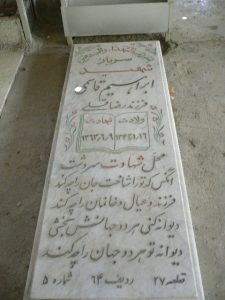 شهید
ابراهیم قاسمی
فرزند رضاقلی
ولادت شهادت
محل شهادت سردشت
آنکس که ترا شناخت جان را چه کند
فرزند و عیال و خانمان را چه کند
دیوانه کنی هر دو جهانش بخشی
دیوانه تو هر دو جهان را چه کند
قطعه ۲۷ ردیف ۶۴ شماره ۵